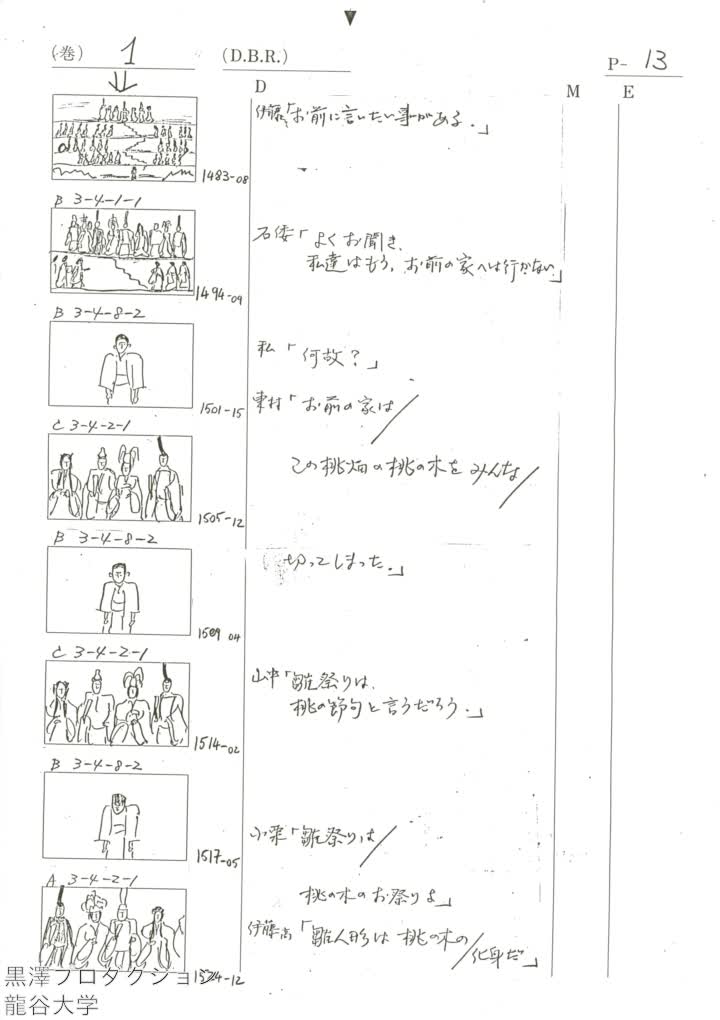 (巻) 1 (D.B.R.) P- 13
D M E
伊藤「お前に言いたい事がある.」
1483-08
B 3-4-1-1
石倭「よくお聞き、
私達はもう、お前の家へは行かない」
1494-09
B 3-4-8-2
私「何故?」
1501-15
東村「お前の家は
C 3-4-2-1
この桃畑の桃の木をみんな
1505-12
B 3-4-8-2
切ってしまった.」
1509 04
C 3-4-2-1
山中「雛祭りは、
桃の節句と言うだろう.」
1514-02
B 3-4-8-2
小栗「雛祭りは
1517-05
A 3-4-2-1
桃の木のお祭りよ」
伊藤高「雛人形は 桃の木の
化身だ」
1524-12
黒澤プロダクショ
龍谷大学